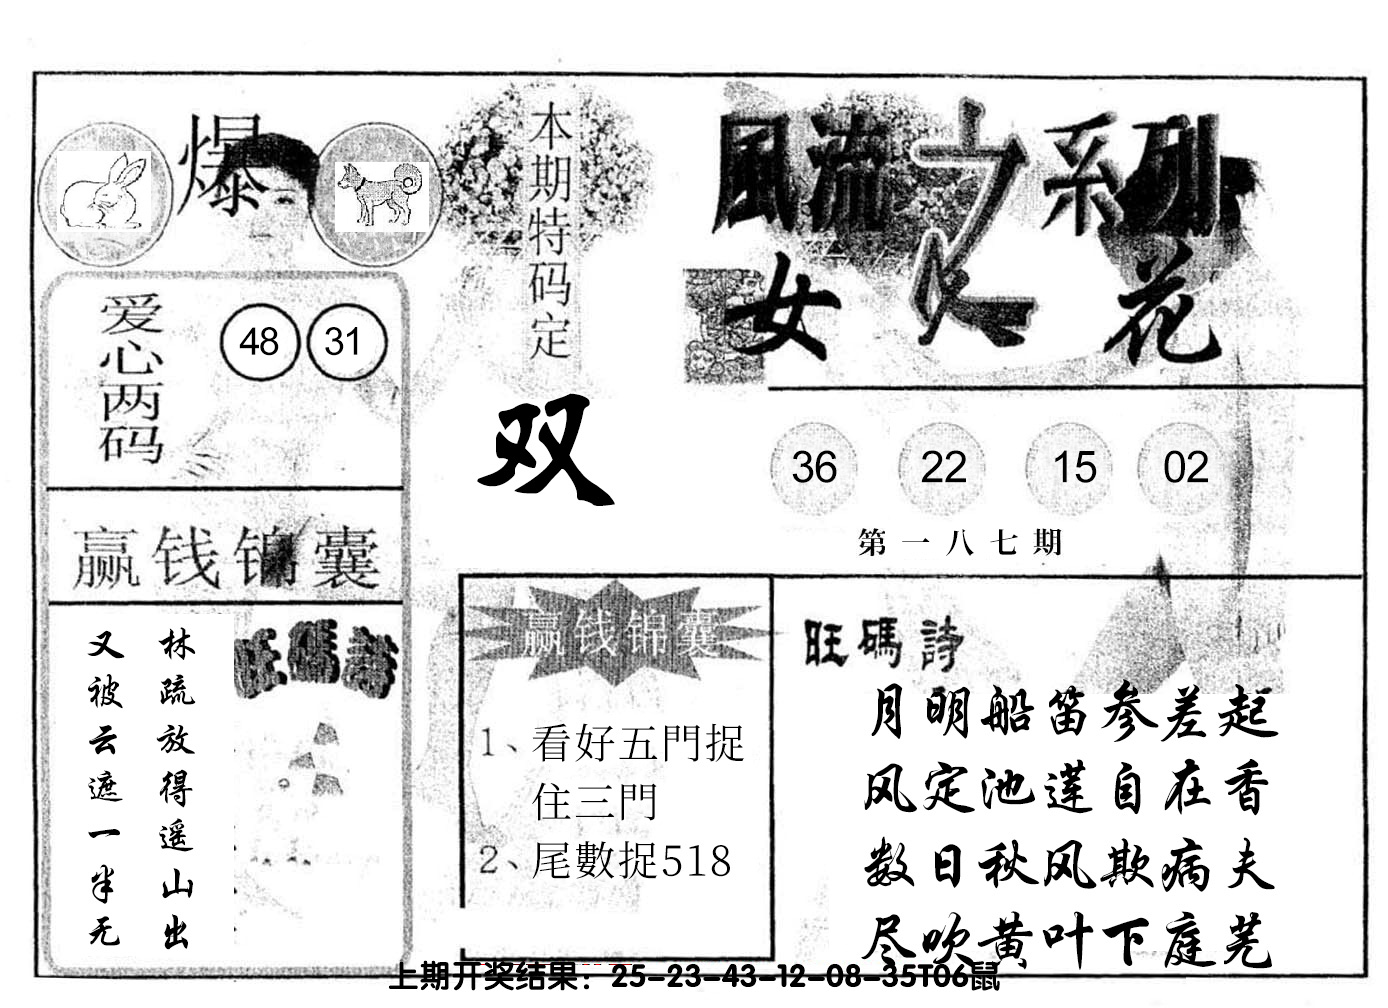 爆
本期特码定
双
爱心两码
48 31
赢钱锦囊
旺碼詩
林疏放得遥山出
又被云遮一半无
風流之系列
女人花
36 22 15 02
第一八七期
赢钱锦囊
1、看好五門捉
住三門
2、尾數捉518
旺碼詩
月明船笛参差起
风定池莲自在香
数日秋风欺病夫
尽吹黄叶下庭芜
上期开奖结果：25-23-43-12-08-35T06鼠